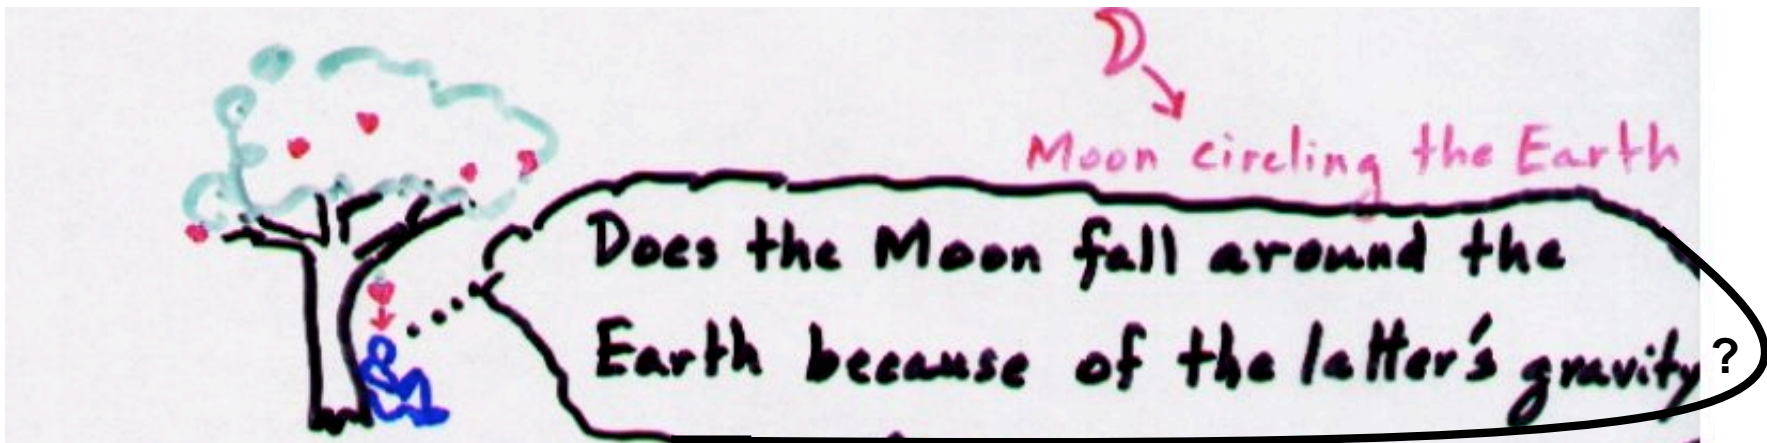 Moon circling the Earth
Does the Moon fall around the
Earth because of the latter's gravity?